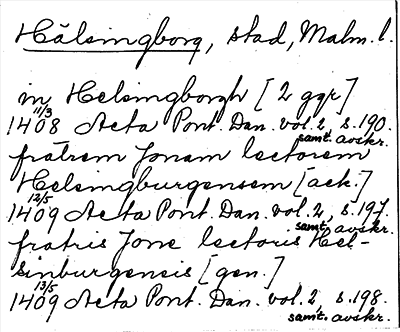 Hälsingborg, stad, Malm. l.
in Helsingborgh [2 ggr]
11/3
1408 Acta Pont. Dan. vol. 2 s. 190.
samt. avskr.
fratrem Jonam lectorem
Helsingburgensem [ack.]
12/5
1409 Acta Pont. Dan. vol. 2, s. 197.
samt. avskr.
fratris Jone lectoris Hel-
sinburgensis [gen.]
13/5
1409 Acta Pont. Dan. vol. 2, s. 198.
samt. avskr.